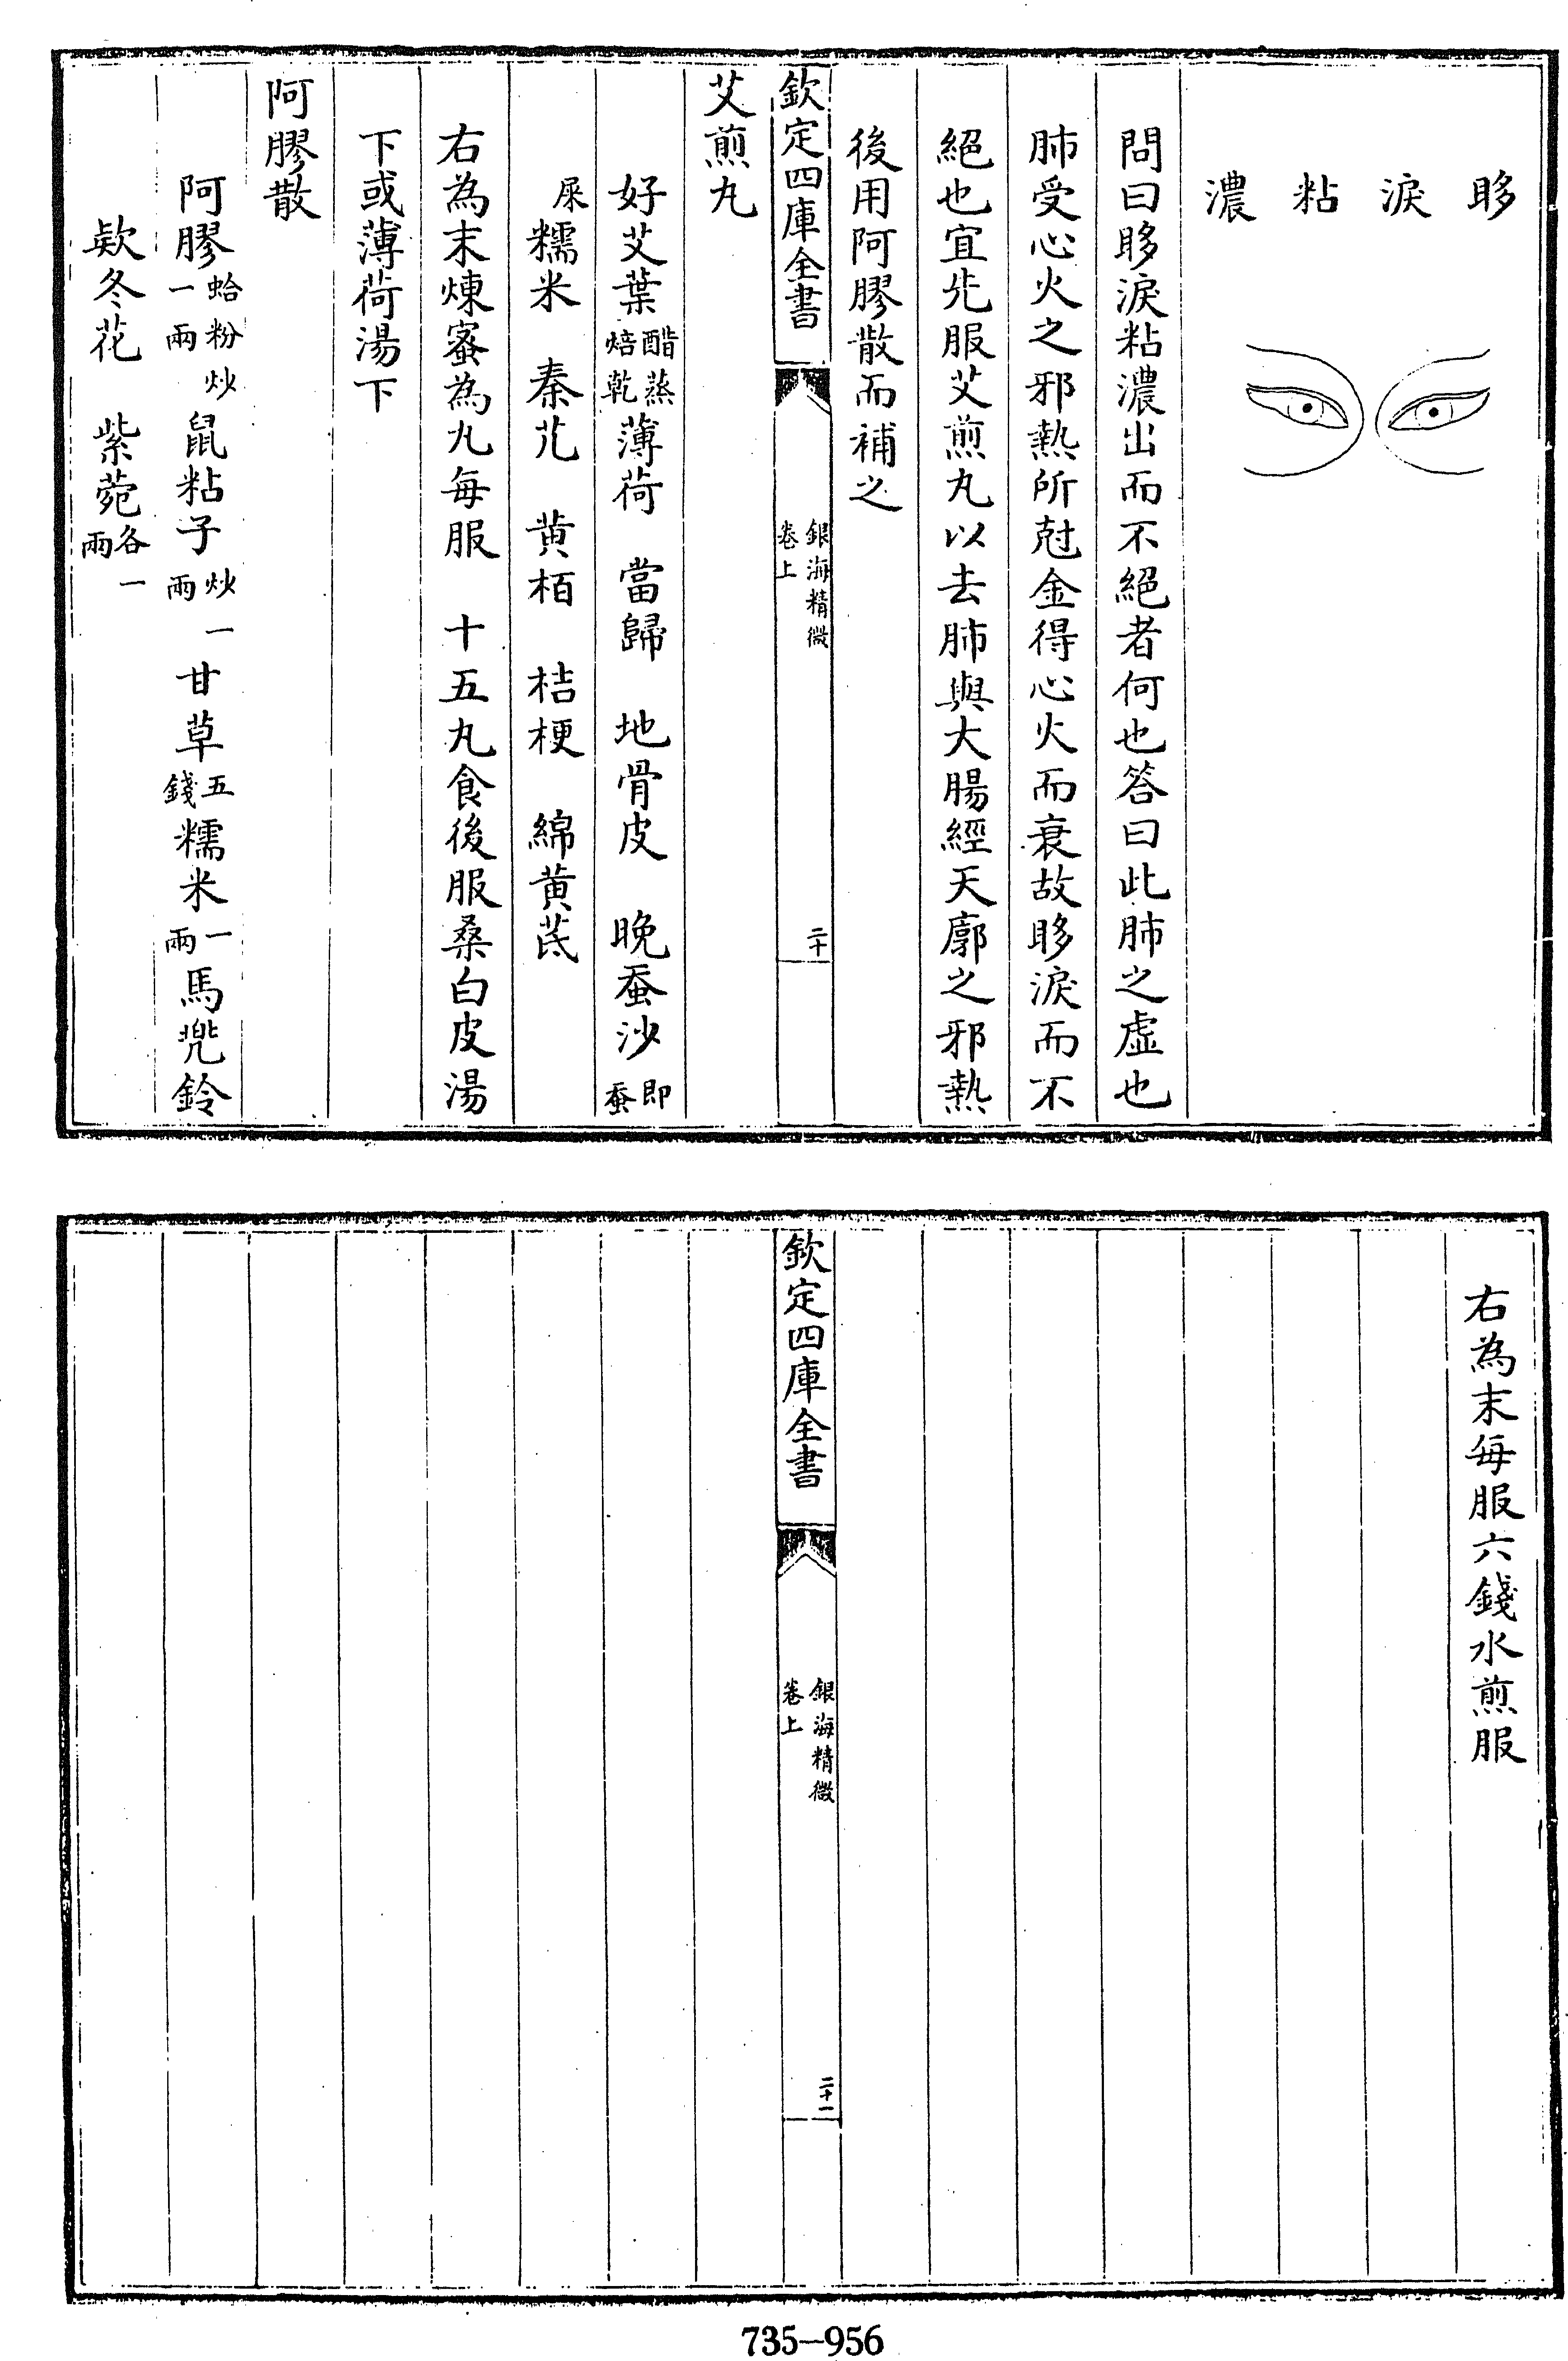 眵淚粘濃
問曰眵淚粘濃出而不絕者何也答曰此肺之虛也
肺受心火之邪熱所尅金得心火而衰故眵淚而不
絕也宜先服艾煎丸以去肺與大腸經天廓之邪熱
後用阿膠散而補之
欽定四庫全書
銀海精微
卷上
二十
艾煎丸
好艾葉醋蒸焙乾薄荷 當歸 地骨皮 晚蚕沙即蚕
屎糯米 秦艽 黄栢 桔梗 綿黄茋
右為末煉蜜為丸每服 十五丸食後服桑白皮湯
下或薄荷湯下
阿膠散
阿膠蛤粉炒一兩鼠粘子炒一兩甘草五錢糯米一兩馬兠鈴
欵冬花 紫菀各一兩
右為末每服六錢水煎服
欽定四庫全書
銀海精微
卷上
二十一
735-956